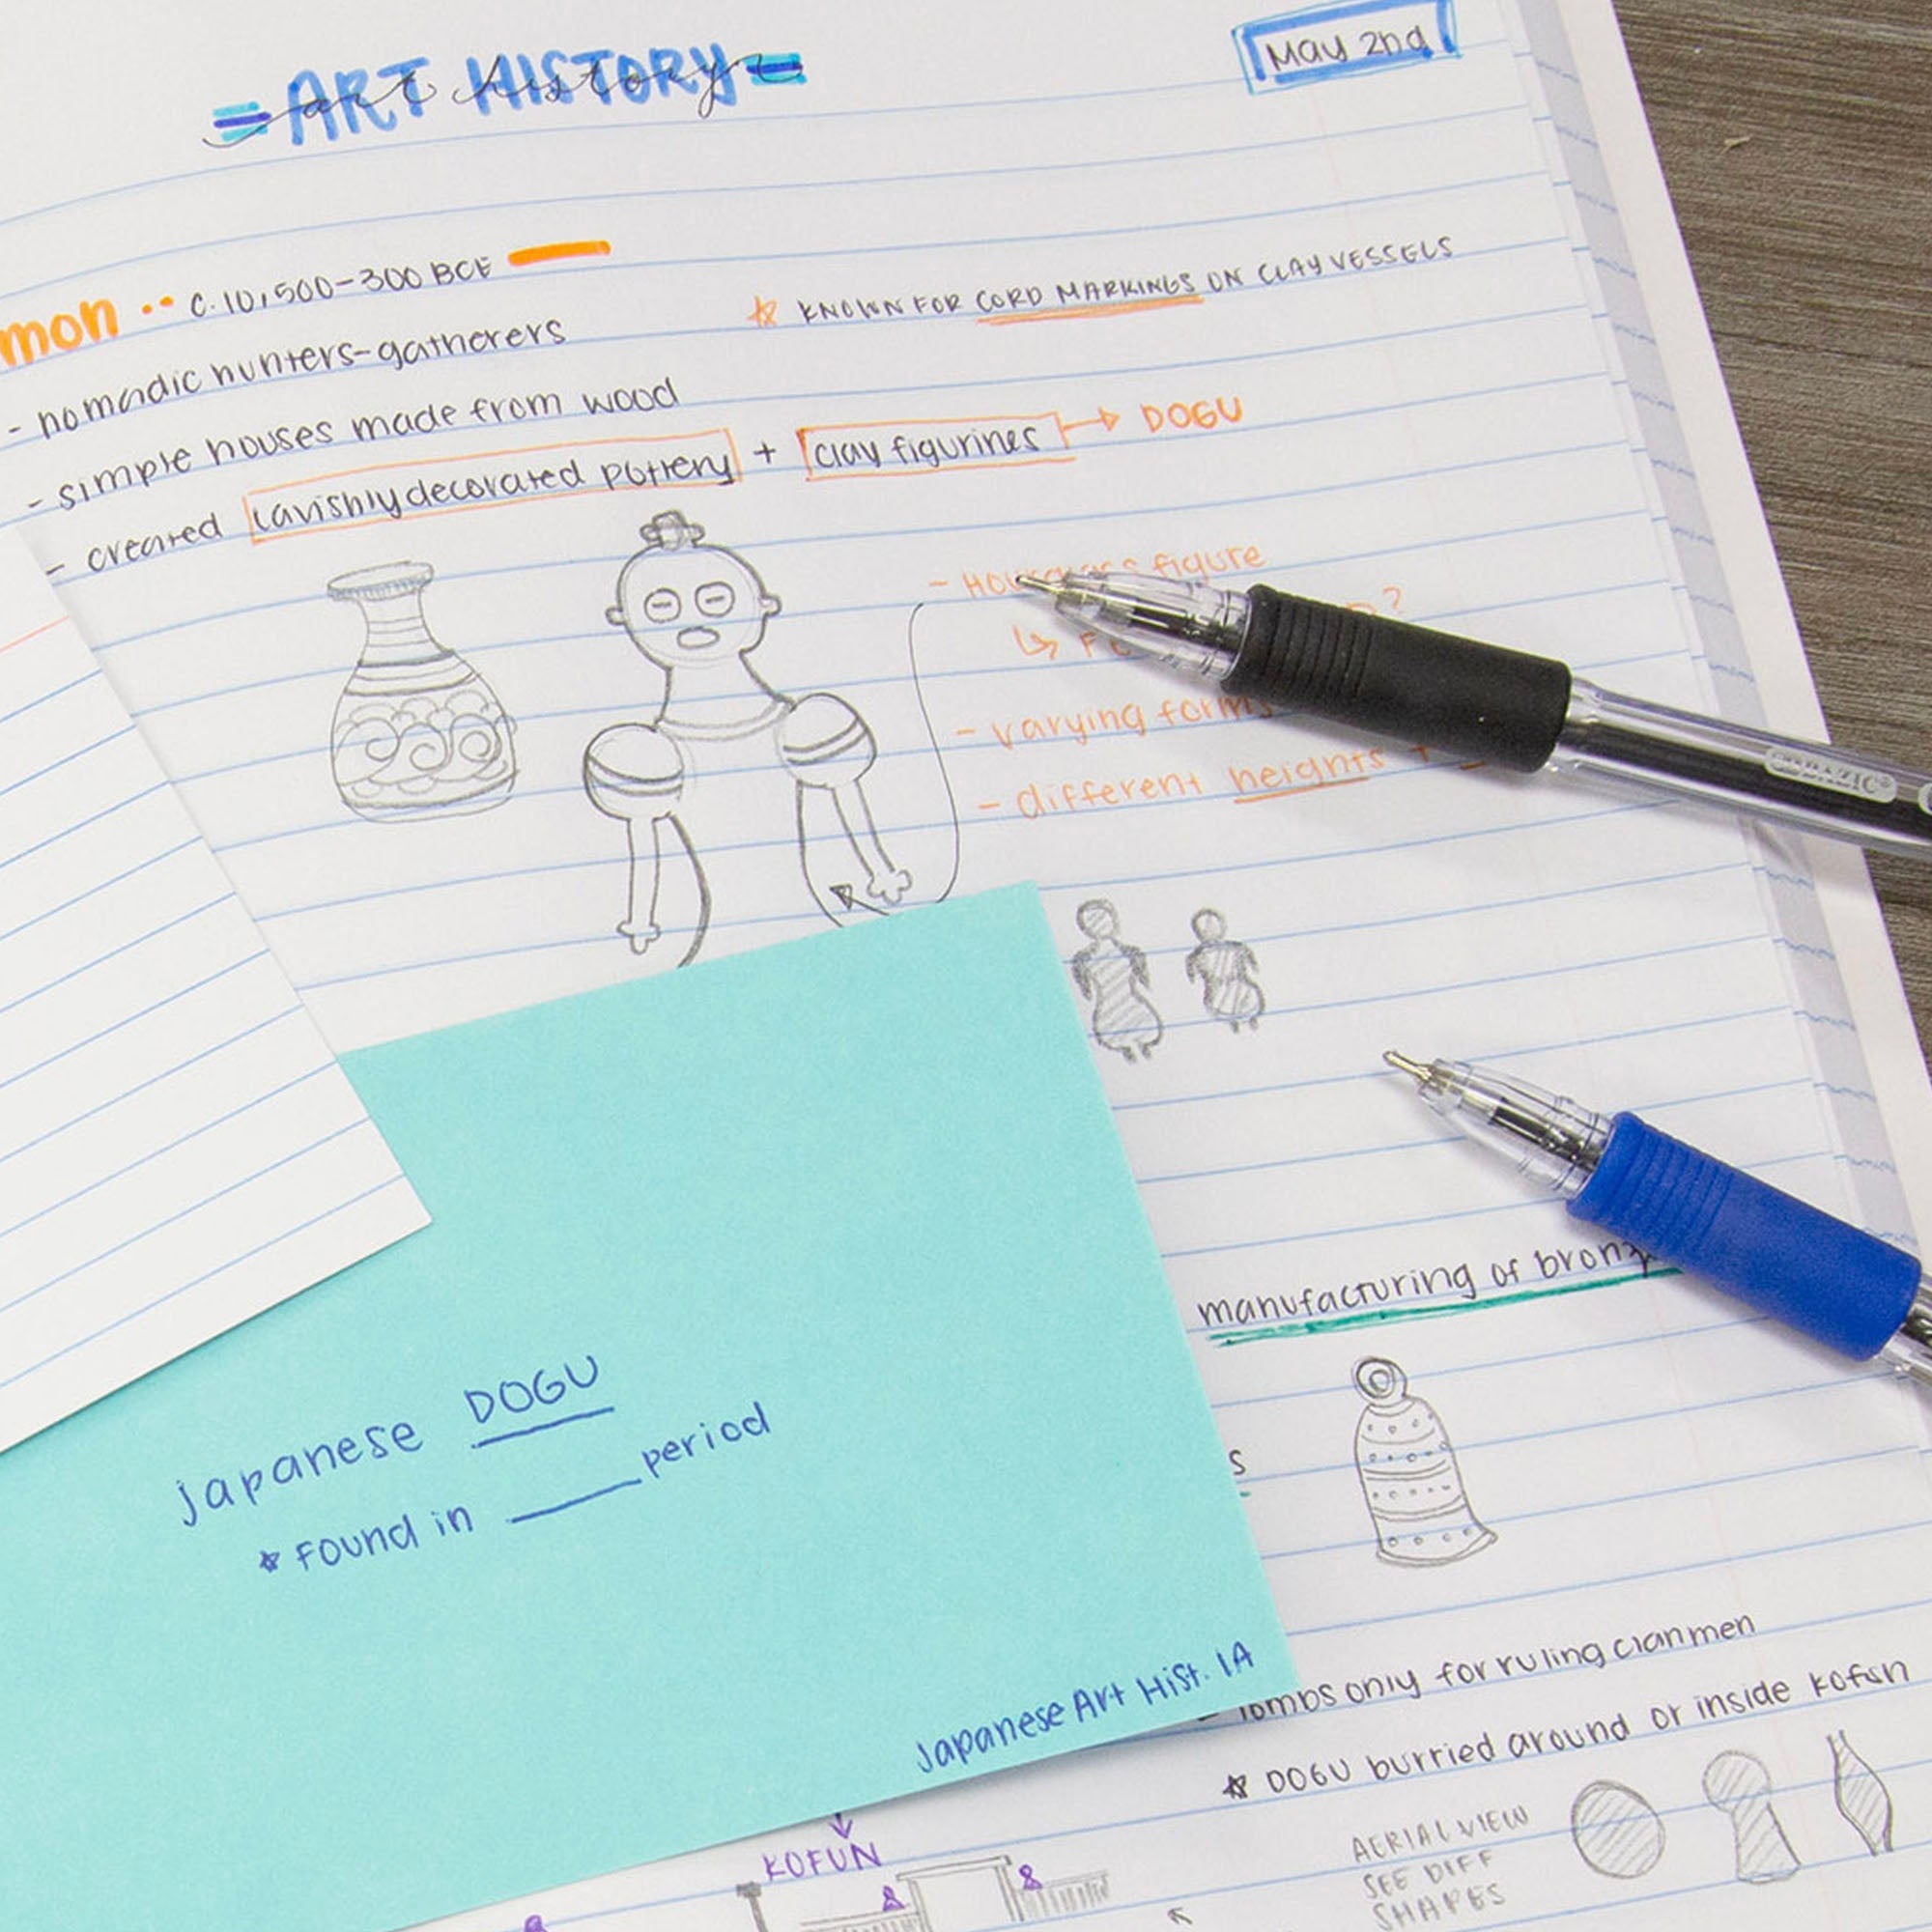 ART HISTORY
art history
May 2nd
mon •• c. 10,500-300 BCE
☆ KNOWN FOR CORD MARKINGS ON CLAY VESSELS
- nomadic hunters-gatherers
- simple houses made from wood
- created lavishly decorated pottery + clay figurines → DOGU
- figure
?
- varying forms
- different heights +
manufacturing of
s
Japanese DOGU
☆ FOUND in ____ period
Japanese Art Hist. 1A
- Tombs only for ruling clanmen
☆ DOGU burried around or inside kofun
AERIAL VIEW
SEE DIFF
SHAPES
KOFUN